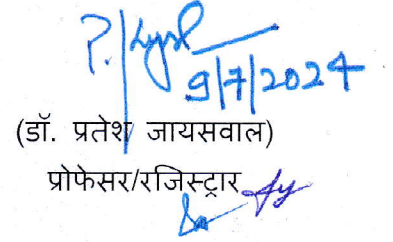 9/7/2024
(डॉ. प्रतेश जायसवाल)
प्रोफेसर/रजिस्ट्रार